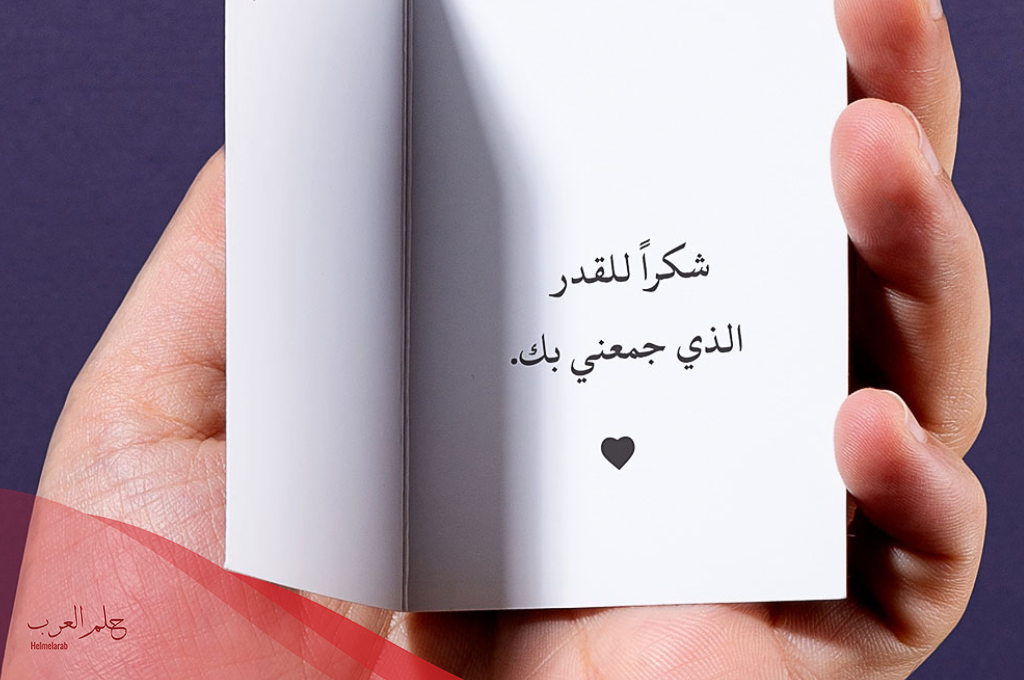 شكراً للقدر
الذي جمعني بك.
♥
حلم العرب
Helmelarab